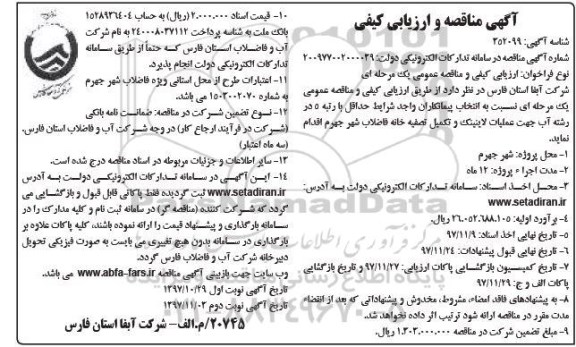 آگهی مناقصه و ارزیابی کیفی
شناسه آگهی: ۳۵۲۰۹۹
شماره آگهی مناقصه در سامانه تدارکات الکترونیکی دولت: ۲۰۰۹۷۷۰۰۲۰۰۰۰۳۹
نوع فراخوان: ارزیابی کیفی و مناقصه عمومی یک مرحله ای
شرکت آبفا استان فارس در نظر دارد از طریق ارزیابی کیفی و مناقصه عمومی
یک مرحله ای نسبت به انتخاب پیمانکاران واجد شرایط حداقل با رتبه ۵ در
رشته آب جهت عملیات لاینینگ و تکمیل تصفیه خانه فاضلاب شهر جهرم اقدام
نماید.
۱- محل پروژه: شهر جهرم
۲- مدت اجراء پروژه: ۱۲ ماه
۳- محل اخذ اسناد: سامانه تدارکات الکترونیکی دولت به آدرس:
www.setadiran.ir
۴- برآورد اولیه: ۲۶.۰۵۲.۶۸۸.۱۰۵ ریال.
۵- تاریخ نهایی اخذ اسناد: ۹۷/۱۱/۹
۶- تاریخ نهایی قبول پیشنهادات: ۹۷/۱۱/۲۴
۷- تاریخ کمیسیون بازگشایی پاکات ارزیابی: ۹۷/۱۱/۲۷ و تاریخ بازگشایی
پاکات الف و ج: ۹۷/۱۱/۲۹
۸- به پیشنهادهای فاقد امضاء، مشروط، مخدوش و پیشنهاداتی که بعد از انقضاء
مدت مقرر در مناقصه ارائه شود ترتیب اثر داده نخواهد شد.
۹- مبلغ تضمین شرکت در مناقصه ۱.۳۰۳.۰۰۰.۰۰۰ ریال.
۱۰- قیمت اسناد ۲.۰۰۰.۰۰۰ (ریال) به حساب ۱۵۲۸۹۳۶۴۰۴
بانک ملت به شناسه پرداخت ۲۴۰۰۰۸۰۳۷۱۱۲ به نام شرکت
آب و فاضلاب استان فارس که حتماً از طریق سامانه
تدارکات الکترونیکی دولت انجام پذیرد.
۱۱- اعتبارات طرح از محل استانی ویژه فاضلاب شهر جهرم
به شماره ۱۵۰۳۰۰۲۰۷۰ می باشد.
۱۲- نوع تضمین شرکت در مناقصه: ضمانت نامه بانکی
(شرکت در فرآیند ارجاع کار) در وجه شرکت آب و فاضلاب استان فارس.
(سه ماه اعتبار)
۱۳- سایر اطلاعات و جزئیات مربوطه در اسناد مناقصه درج شده است.
۱۴- این آگهی در سامانه تدارکات الکترونیکی دولت به آدرس
www.setadiran.ir ثبت گردیده فقط پاکاتی قابل قبول و بازگشایی می
گردد که شرکت کننده (مناقصه گر) در سامانه ثبت نام و کلیه مدارک را در
سامانه بارگذاری و پیشنهاد قیمت را ارائه نموده باشند، کلیه پاکات علاوه بر
بارگذاری در سامانه بدون هیچ تغییری می بایست به صورت فیزیکی تحویل
دبیرخانه شرکت آب و فاضلاب فارس گردد.
وب سایت جهت بازبینی آگهی مناقصه www.abfa-fars.ir می باشد.
تاریخ آگهی نوبت اول ۱۳۹۷/۱۰/۲۹
تاریخ آگهی نوبت دوم ۱۳۹۷/۱۱/۰۳
۲۰۷۴۵/م.الف- شرکت آبفا استان فارس